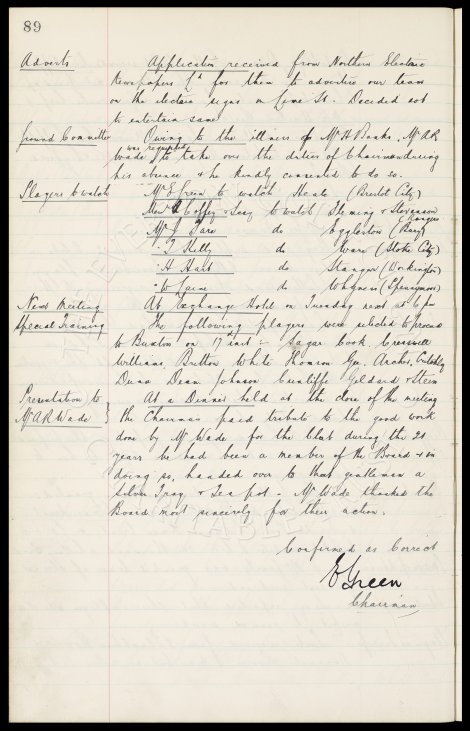 89
Adverts Application received from Northern Electric
Newspapers Ld for them to advertise our team
on the electric signs in Lime St. Decided not
to entertain same
Ground Committee Owing to the illness of Mr H Banks, Mr A R
Wade was requested to take over the duties of Chairman during
his absence & he kindly consented to do so.
Players to watch Mr E Green to watch Heale (Bristol City)
Coffey & to watch Fleming & Stevenson
Rangers
Mr J do Eggleston (Bury)
" T Kelly do Ware (Stoke City)
" H Hart do Stanger (Workington)
" W do (Spennymoor)
Next Meeting At Exchange Hotel on Tuesday next at 6 pm
Special Training The following players were selected to proceed
to Buxton on 17 inst - Sagar Cook. Cresswell
Williams, Britton White Thomson Gee, Archer, Critchley
Dunn Dean Johnson Cunliffe Geldard & Stein
Presentation to
Mr A R Wade } At a Dinner held at the close of the meeting
the Chairman paid tribute to the good work
done by Mr Wade for the Club during the 21
years he had been a member of the Board & in
doing so, handed over to that gentleman a
Silver Tray & Tea pot. Mr Wade thanked the
Board most sincerely for their action.
Confirmed as Correct
E Green
Chairman